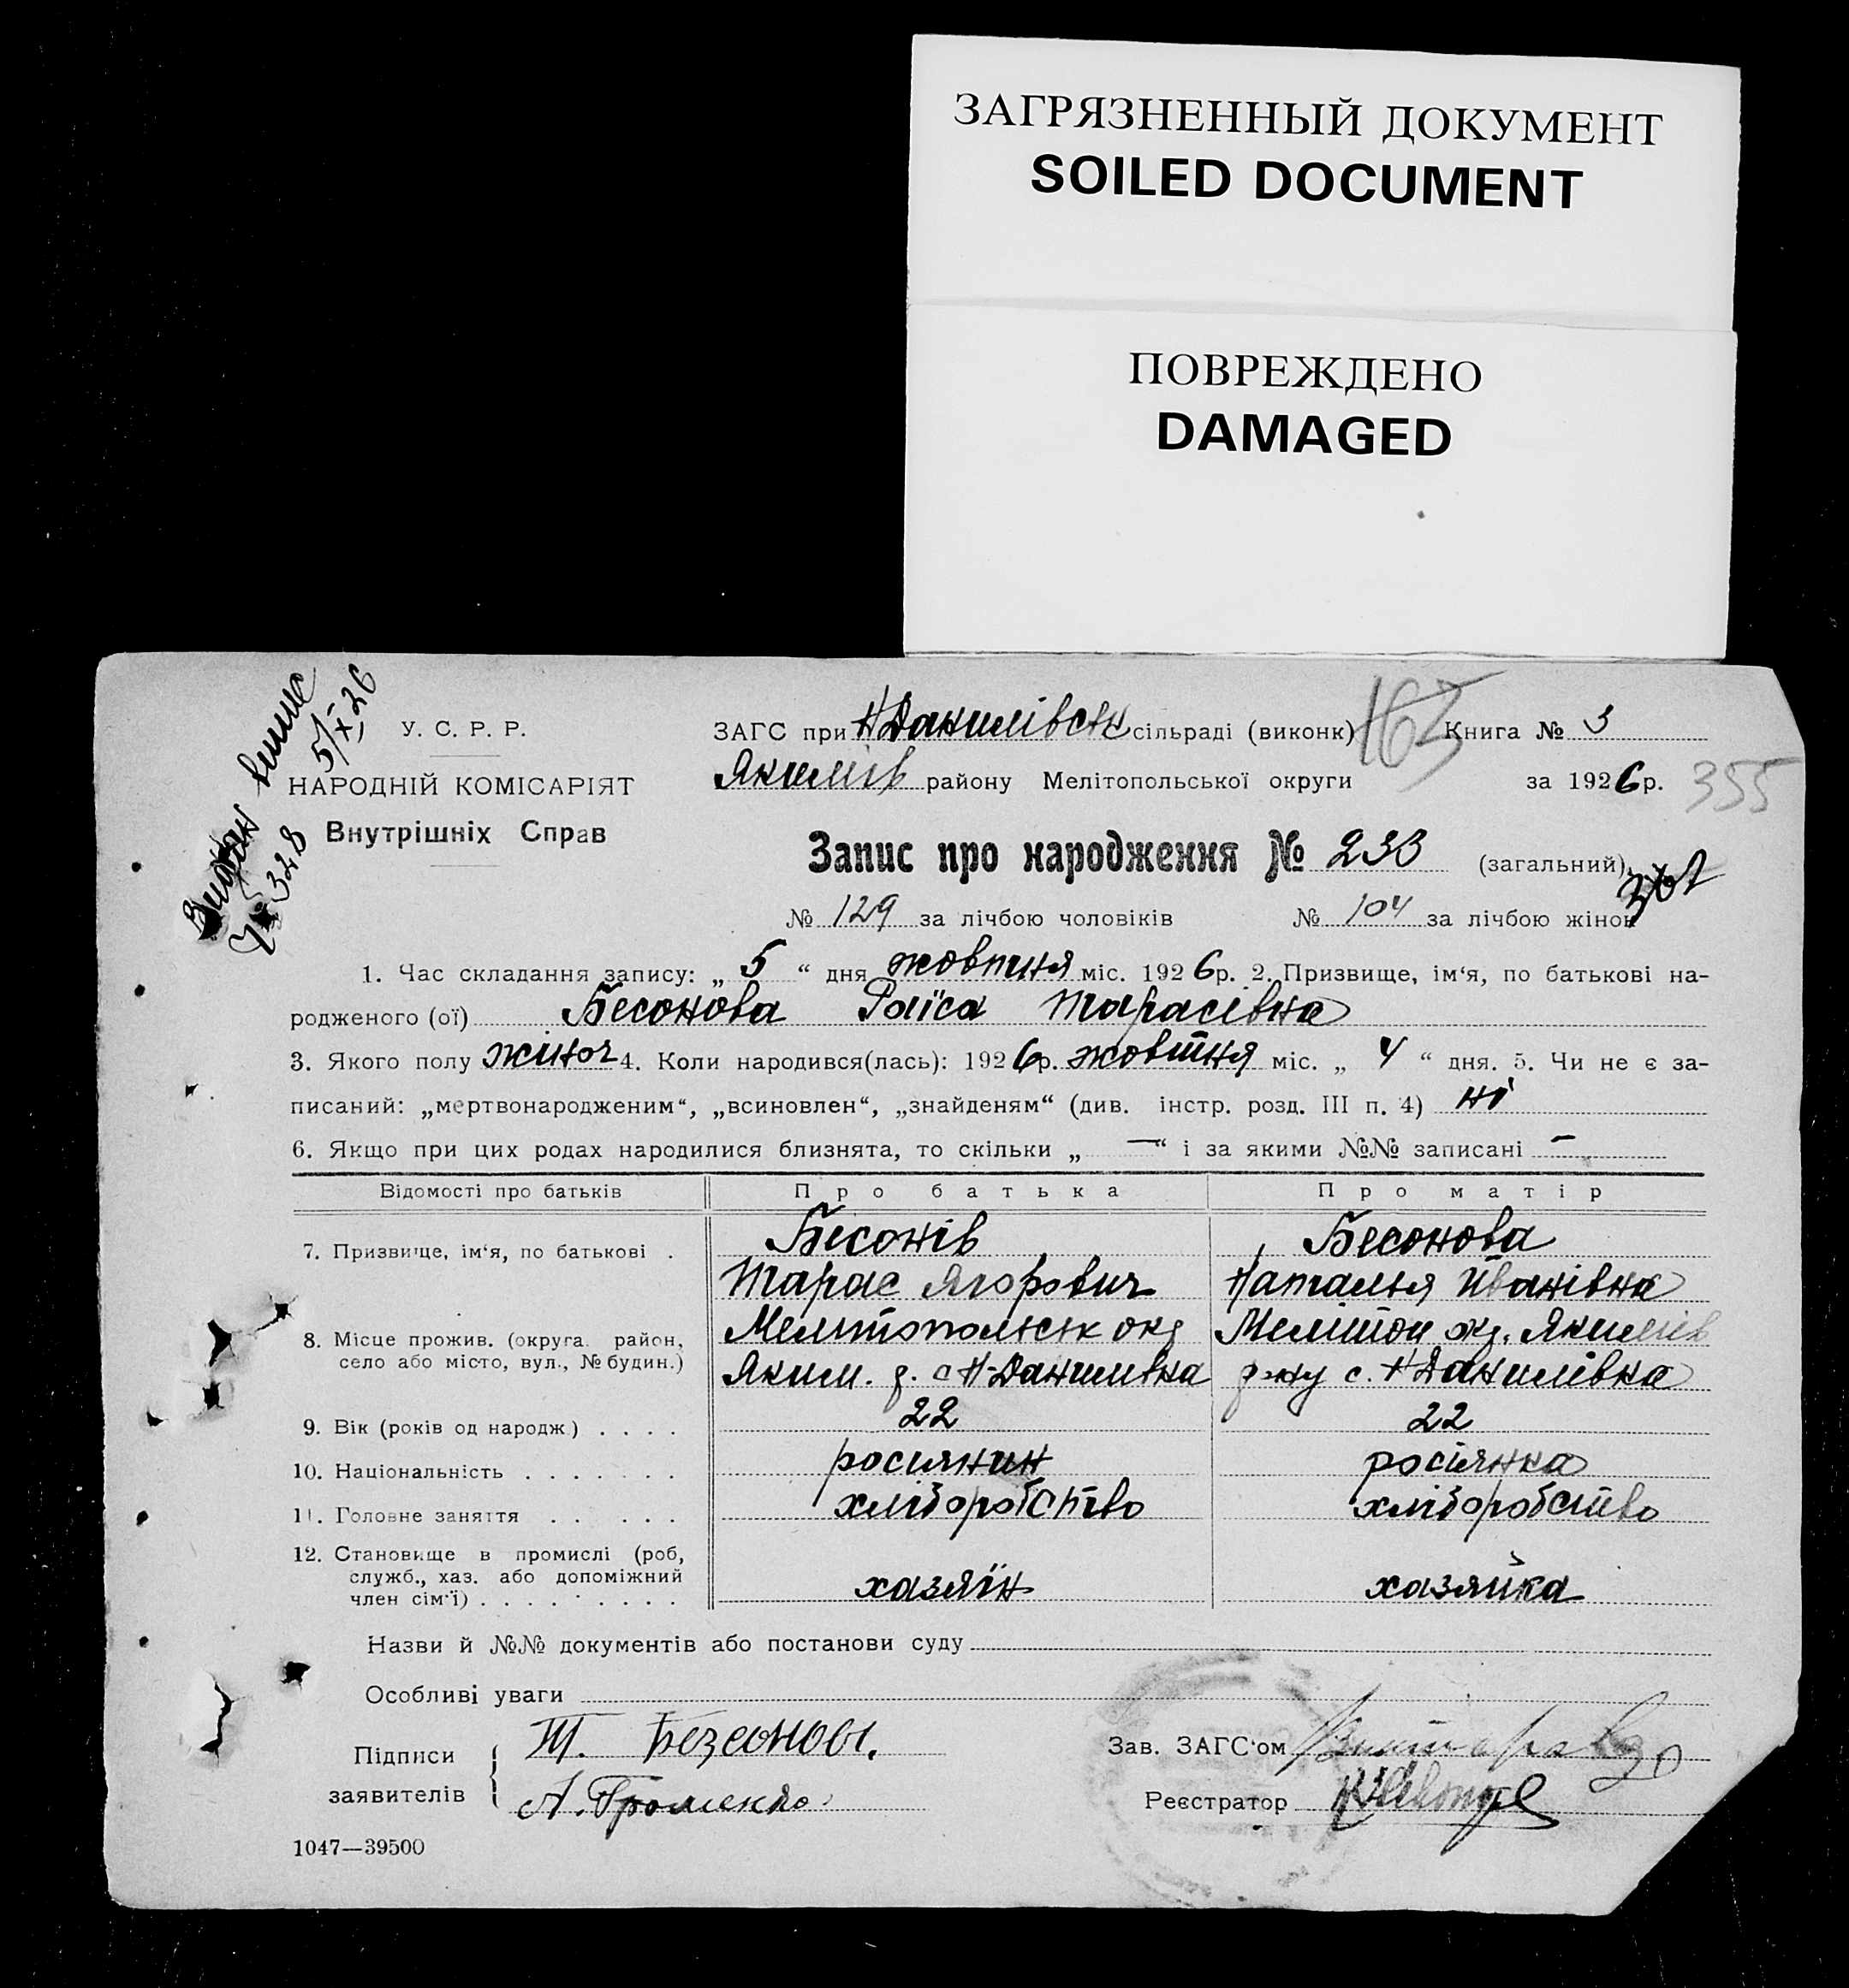 ЗАГРЯЗНЕННЫЙ ДОКУМЕНТ
SOILED DOCUMENT
ПОВРЕЖДЕНО
DAMAGED
Видан випис
5/X 26
№ 328
У. С. Р. Р.
НАРОДНІЙ КОМІСАРІЯТ
Внутрішніх Справ
ЗАГС при Н Данилівськ сільраді (виконк) Книга № 3
163
Якимів району Мелітопольської округи за 1926 р.
355
Запис про народження № 233 (загальний)
№ 129 за лічбою чоловіків № 104 за лічбою жінок
1. Час складання запису: „ 5 “ дня жовтня міс. 1926 р. 2. Призвище, ім‘я, по батькові на-
родженого (ої) Бесонова Раїса Тарасівна
3. Якого полу жіноч 4. Коли народився(лась): 1926 р. жовтня міс. „ 4 “ дня. 5. Чи не є за-
писаний: „мертвонародженим“, „всиновлен“, „знайденям“ (див. інстр. розд. III п. 4) ні
6. Якщо при цих родах народилися близнята, то скільки „ — “ і за якими №№ записані —
Відомості про батьків Про батька Про матір
7. Призвище, ім‘я, по батькові . Бесонів Бесонова
Тарас Ягорович Наталья Иванівна
8. Місце прожив. (округа, район, Мелитопольськ окр Мелітоп окр. Якимів
село або місто, вул., № будин.) Яким. р. с Н-Данилівка р-ну с. Н Данилівка
9. Вік (років од народж) . . . . 22 22
10. Національність . . . . . . . росиянин росіянка
11. Головне заняття . . . . . хліборобство хліборобство
12. Становище в промислі (роб,
служб., хаз. або допоміжний хазяїн хазяйка
член сім‘ї) . . . . . . . . .
Назви й №№ документів або постанови суду
Особливі уваги
Підписи Т. Безсонов. Зав. ЗАГС‘ом
заявителів А. Громенко Реєстратор
1047—39500